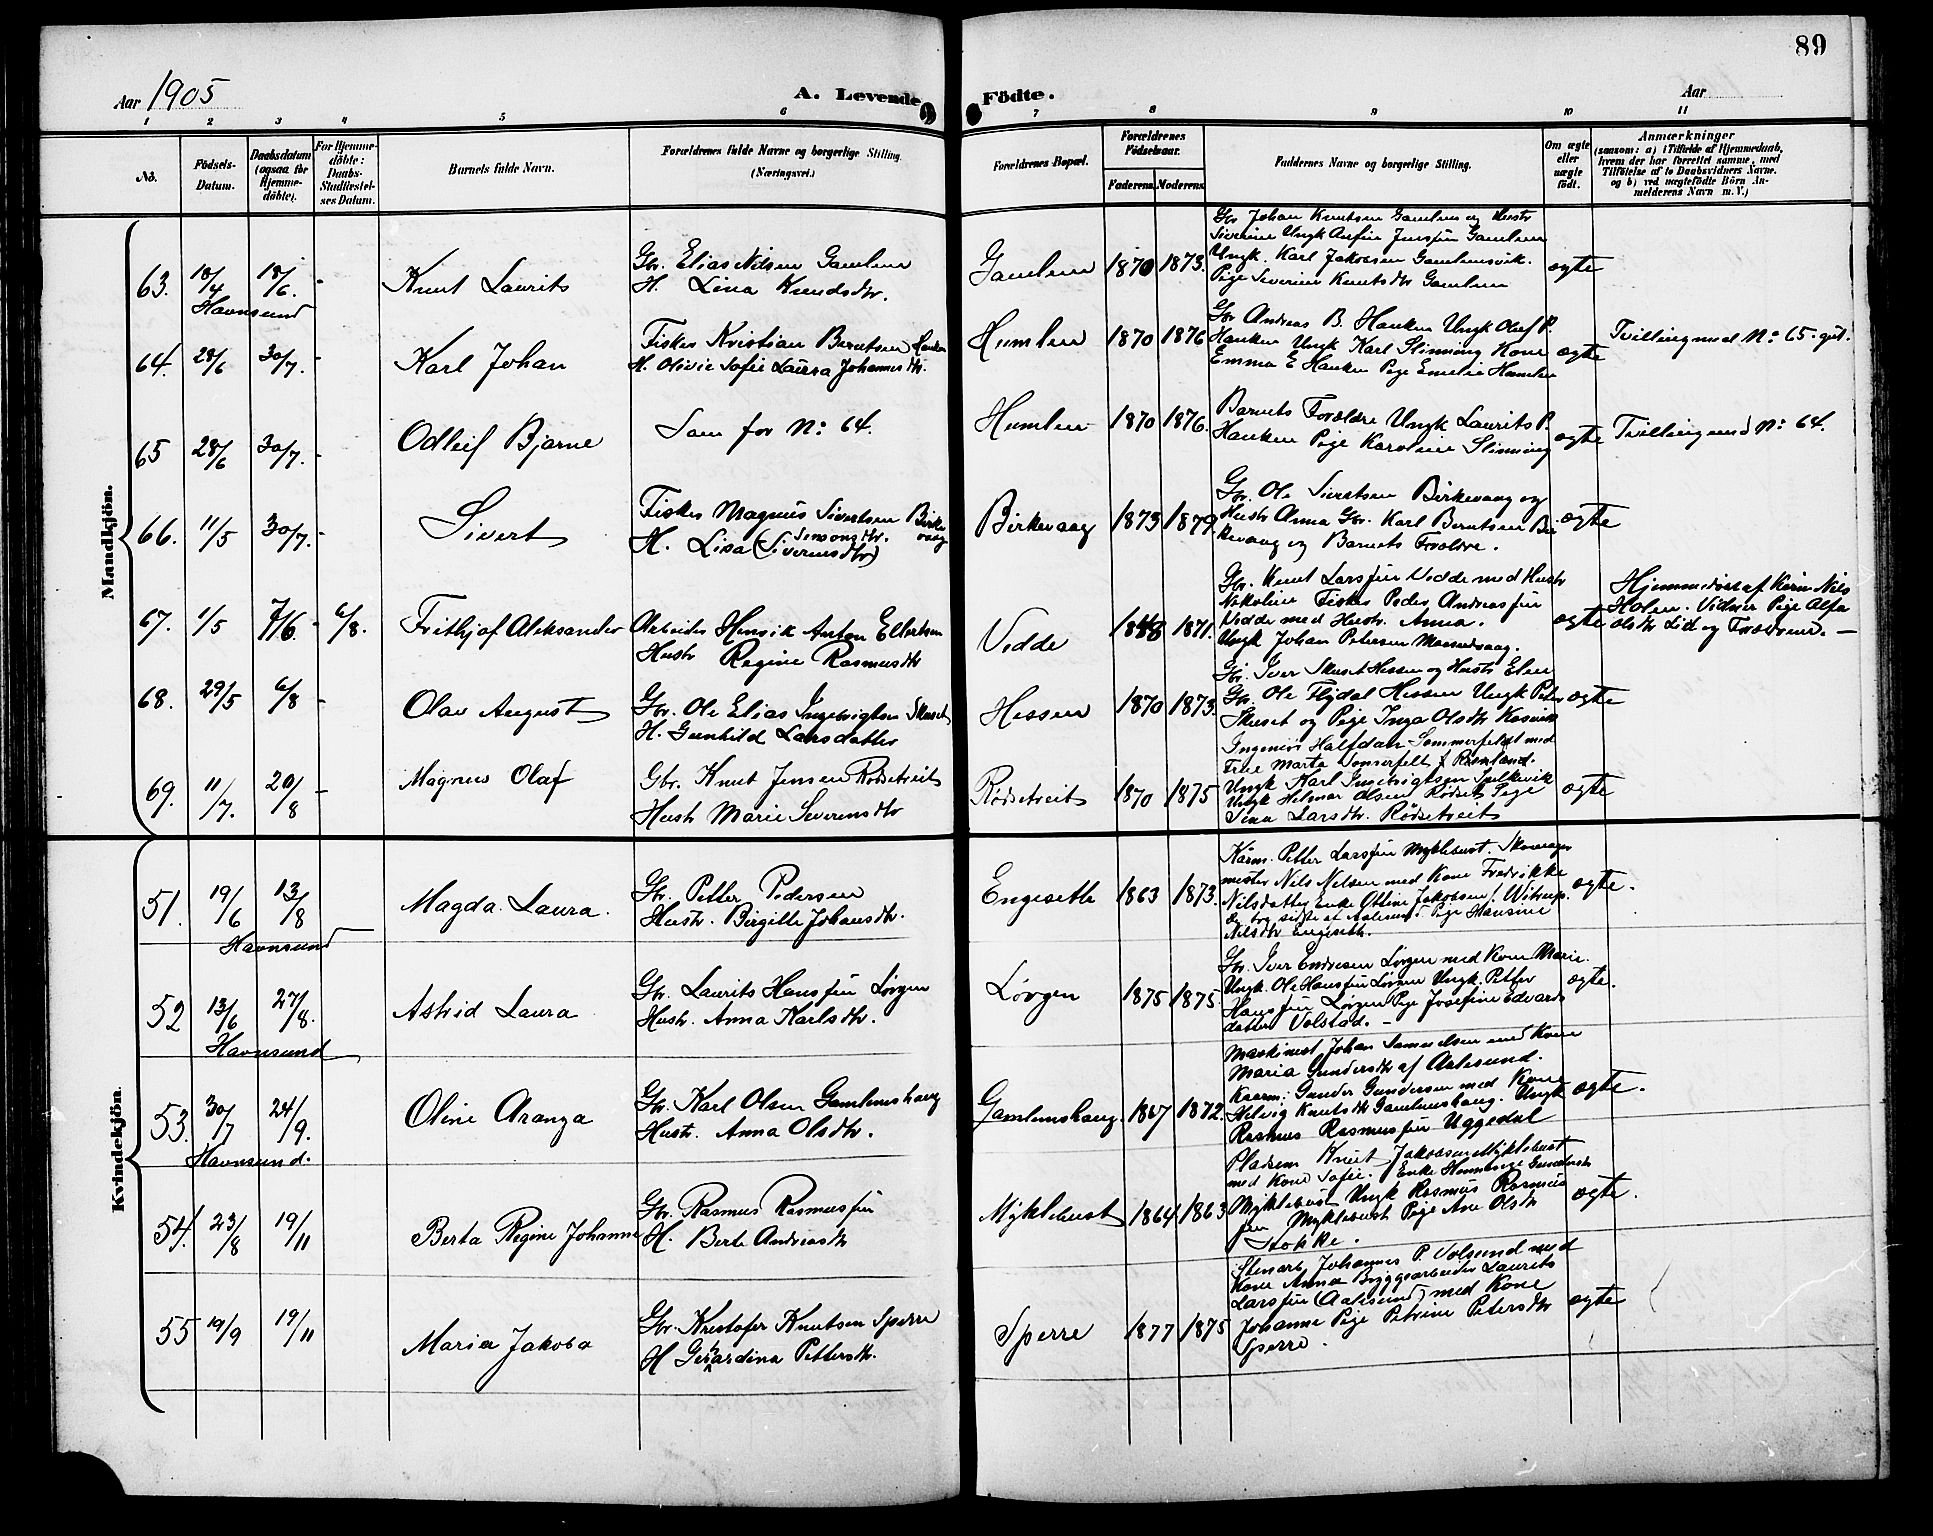 89
Aar 1905
A. Levende Födte.
Aar
1 2 3 4 5 6 7 8 9 10 11
No.
Födsels-
Datum.
Daabsdatum
(ogsaa for
Hjemme-
döbte).
For Hjemme-
döbte:
Daabs-
Stadfæstel-
ses Datum.
Barnets fulde Navn.
Forældrenes fulde Navne og borgerlige Stilling.
(Næringsvei.)
Forældrenes Bopæl.
Forældrenes
Födselsaar.
Faderens. Moderens.
Faddernes Navne og borgerlige Stilling.
Om ægte
eller
uægte
født.
Anmærkninger
(saasom: a) i Tilfælde af Hjemmedaab,
hvem der har forrettet samme, med
Tilföielse af to Daabsvidners Navne,
og b) ved uægtefödte Börn An-
melderens Navn m. V.)
Mandkjön.
63. 10/4 18/6. - Knut Laurits
Havnsund
Gbr. Elias Nilsen Gamlem
H. Lina Knudsdtr.
Gamlem 1870 1873.
Gbr Johan Knutsen Gamlem og Hustr
Ungk. Karl Jakobsen Gamlemsvik.
Pige Severine Knutsdtr Gamlem
ægte
64. 28/6 30/7. - Karl Johan
Fisker Kristian Berntsen Hanken
H. Olivie Sofie Laura Johannesdtr.
Humlen 1870 1876
Gbr Andreas B. Hanken Ungk Oluf P.
Hanken Ungk Karl Slinning Kone
Emma E Hanken Pige Emelie Humlen
ægte
Tvilling med No: 65. gut.
65 28/6 30/7. - Odleif Bjarne
Som for No: 64.
Humlen 1870 1876.
Barnets Forældre Ungk Laurits P.
Hanken Pige Karoline Slinning
ægte
Tvilling med No: 64.
66. 11/5 30/7. - Sivert
Fisker Magnus Sivertsen Birkevaag
H. Lisa (Siverinsdtr) Simonsdtr.
Birkevaag 1873 1879
Gbr. Ole Sivertsen Birkevaag og
Hustr Anna Gbr. Karl Berntsen Bir
kevaag og Barnets Forældre.
ægte
67. 1/5 7/6. - 6/8. Frithjof Aleksander
Arbeider Henrik Anton Ellertsen
Hustr Regine Rasmusdtr
Vedde 1871.
Gbr. Knut Larssen Vedde med Hustr
Nikoline Fisker Peder Andreassen
Vedde med Hustr. Anna.
Ungk Johan Petersen
ægte
Hjemmedøbt af Karen Nils
Holen. Vidner Pige Alfa
Olsdtr Lid og Forældrene. -
68. 29/5 6/8 - Olav August
Gbr. Ole Elias Ingebrigtsen Skuset
H. Gunhild Larsdatter
Hessen 1870 1873.
Gbr. Iver Skuset Hessen og Hustr Elen
Gbr. Ole Flydal Hessen Ungk Peter
Skuset og Pige Inga Olsdtr
ægte
69. 11/7. 20/8 - Magnus Olaf
Gbr. Knut Jensen Rødsetreit
Hustr Marie Severinsdtr
Rødsetreit 1870 1875
Ingeniør Halfdan Sommerfeldt med
Frue Marta Sommerfelt f
Ungk Karl Ingebrigtsen Spelkevik
Ungk Helmar Olsen Rødset Pige
Sina Larsdtr. Rødsetreit
ægte
Kvindekjön.
51. 19/6 13/8 Magda Laura.
Havnsund
Gbr. Petter Pedersen
Hustr. Birgitte Johansdtr.
Engeseth 1863 1873.
Kårm. Petter Larssen Myklebust. Skomager
mester Nils Nilsen med Kone Fredrikke
Nilsdatter Enke Ottine Jakobsen f. Witrup.
Pige Hansine
Nilsdtr Engeseth.
ægte.
52 13/6 27/8. Astrid Laura
Havnsund
Gbr. Laurits Hanssen Lørgen
Hustr. Anna Karlsdtr.
Lørgen 1875 1875.
Gbr. Iver Endresen Lørgen med Kone Marie.
Ungk. Ole Hanssen Lørgen Ungk. Petter
Hanssen Lørgen Pige Josefine Edvards
datter Volstad. -
ægte.
53. 30/7 24/9. Oline Aranga
Havnsund.
Gbr. Karl Olsen Gamlemshaug
Hustr. Anna Olsdtr.
Gamlemshaug. 1867 1872.
Maskinist Johan Samuelsen med Kone
Maria Gundersdtr af Aalesund.
Kaarm: Gunder Gundersen med Kone
Helvig Knutsdtr Gamlemshaug. Ungk
Rasmus Rasmussen Uggedal
ægte.
54. 23/8 19/11 Berta Regine Johanne
Gbr. Rasmus Rasmussen
H. Berte Andreasdtr
Myklebust 1864 1863
Pladsem Knut Jakobsen Myklebust
med Kone Sofie. Enke
Myklebust Ungk Rasmus Rasmus
sen Myklebust Pige Ane Olsdtr
Stokke.
ægte.
55 19/9 19/11 Maria Jakoba
Gbr. Kristofer Knutsen Sperre
H Gerhardina Pettersdtr.
Sperre 1877 1875
Stenarb. Johannes P. Solsund med
Kone Anna Byggearbeider Laurits
Larssen (Aalesund) med Kone
Johanne Pige Petrine Petersdtr
Sperre.
ægte